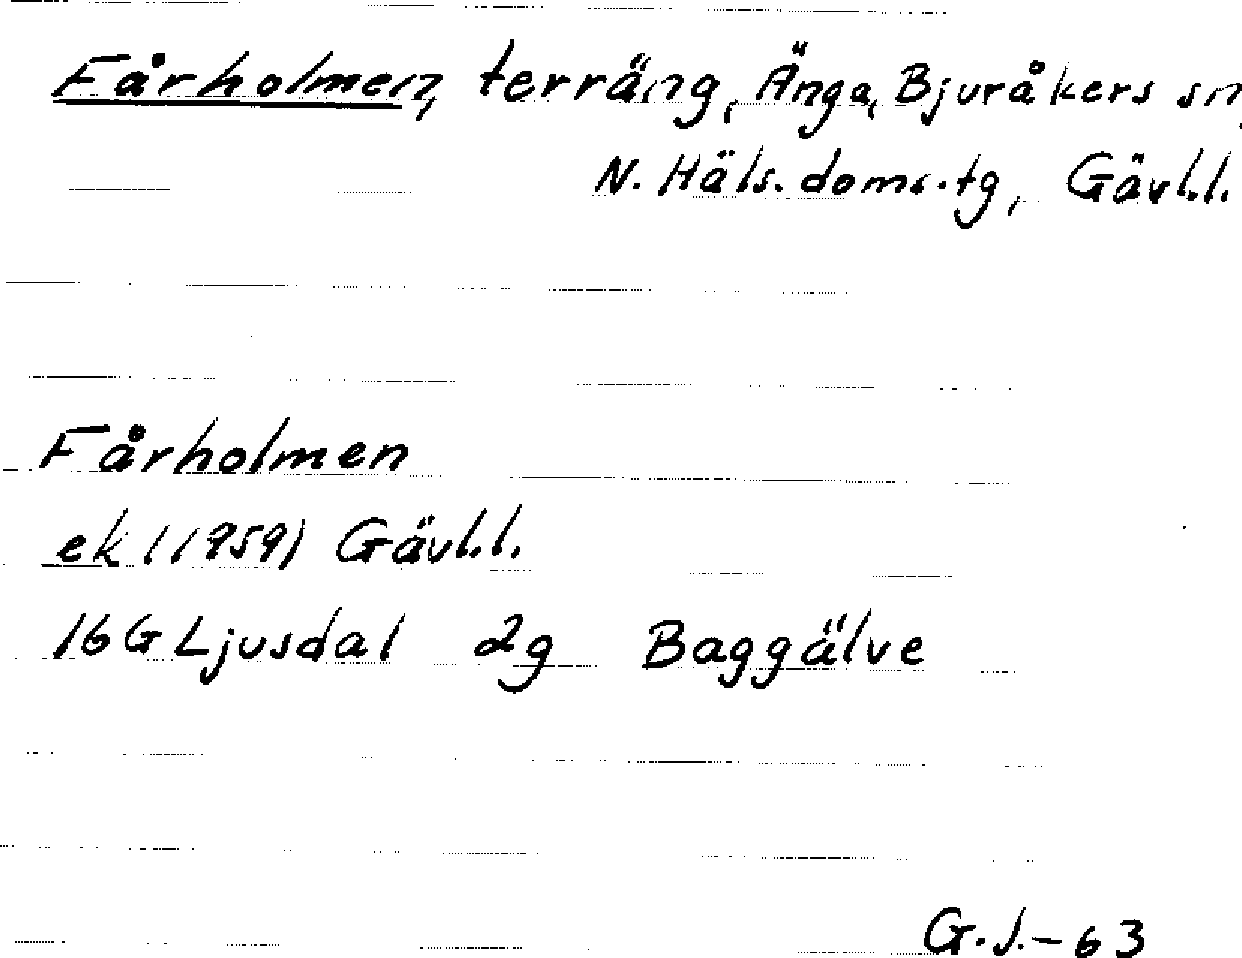 Fårholmen, terräng, Änga, Bjuråkers sn,
N. Häls. doms.tg, Gävl.l.
Fårholmen
ek (1959) Gävl.l.
16G Ljusdal 2g Baggälve
G.J.-63